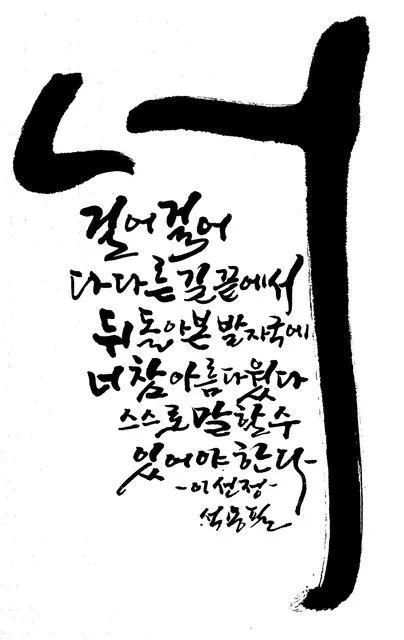 너
걸어걸어
다다른 길 끝에서
뒤돌아본 발자국에
너 참 아름다웠다
스스로 말할 수
있어야 한다
-이선정-
석용필